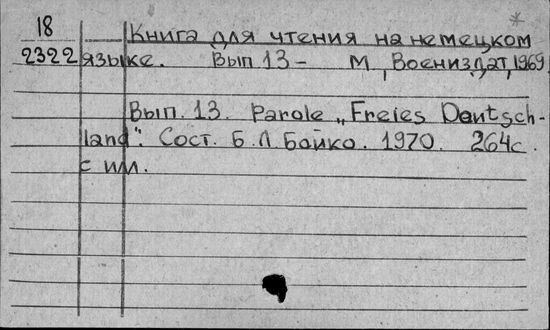 18
2322
Книга для чтения на немецком
языке. Вып 13 – М, Воениздат, 1969
Вып. 13. Parole „Freies Deutsch-
land". Сост. Б. Л. Бойко. 1970. 264с.
с ил.